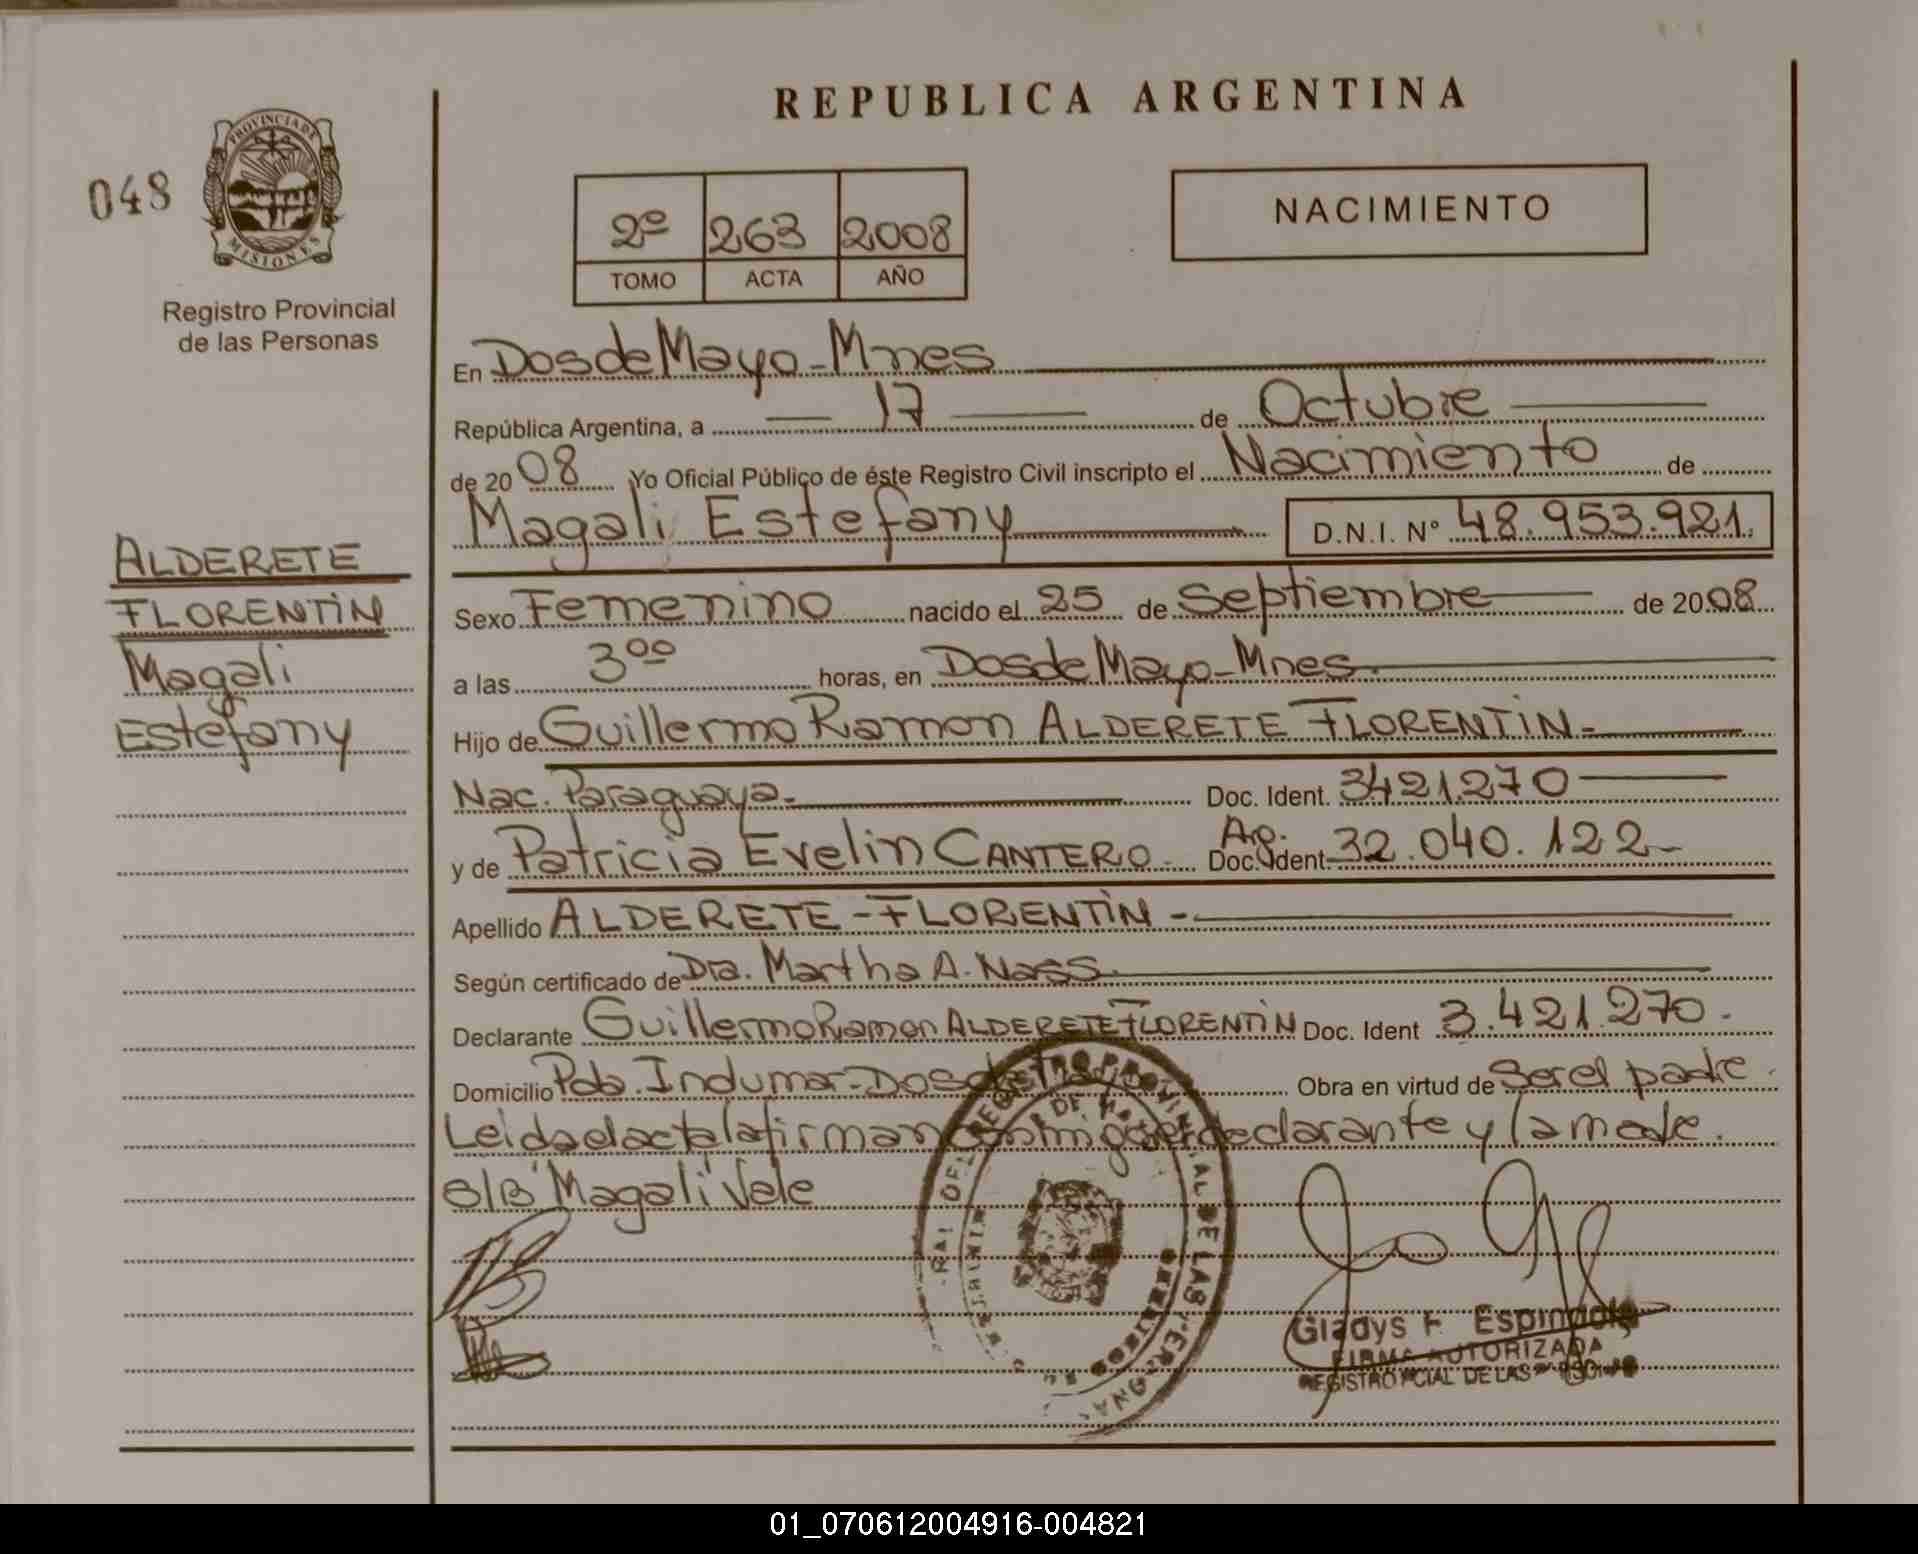 REPUBLICA ARGENTINA
048
PROVINCIA DE
MISIONES
Registro Provincial
de las Personas
2º 263 2008
TOMO ACTA AÑO
NACIMIENTO
En Dos de Mayo - Mnes
República Argentina, a 17 de Octubre
de 2008 Yo Oficial Público de éste Registro Civil inscripto el Nacimiento de
Magali Estefany D.N.I. Nº 48.953.921.
ALDERETE
FLORENTIN
Magali
Estefany
Sexo Femenino nacido el 25 de Septiembre de 2008
a las 3 00 horas, en Dos de Mayo - Mnes.
Hijo de Guillermo Ramon ALDERETE FLORENTIN -
Nac. Paraguaya. Doc. Ident. 3421.270
y de Patricia Evelin CANTERO Doc. Ident. Ar. 32.040.122 -
Apellido ALDERETE - FLORENTIN -
Según certificado de Dra. Martha A. Nass.
Declarante Guillermo Ramon ALDERETE FLORENTIN Doc. Ident 3.421.270.
Domicilio Pda. Indumar - Dos de Obra en virtud de Ser el padre.
Leida el acta la firman conmigo el declarante y la madre.
S/B "Magali" Vale
REGISTRO PROVINCIAL DE LAS
Gladys F. Espindola
FIRMA AUTORIZADA
REGISTRO PCIAL DE LAS
01_070612004916-004821